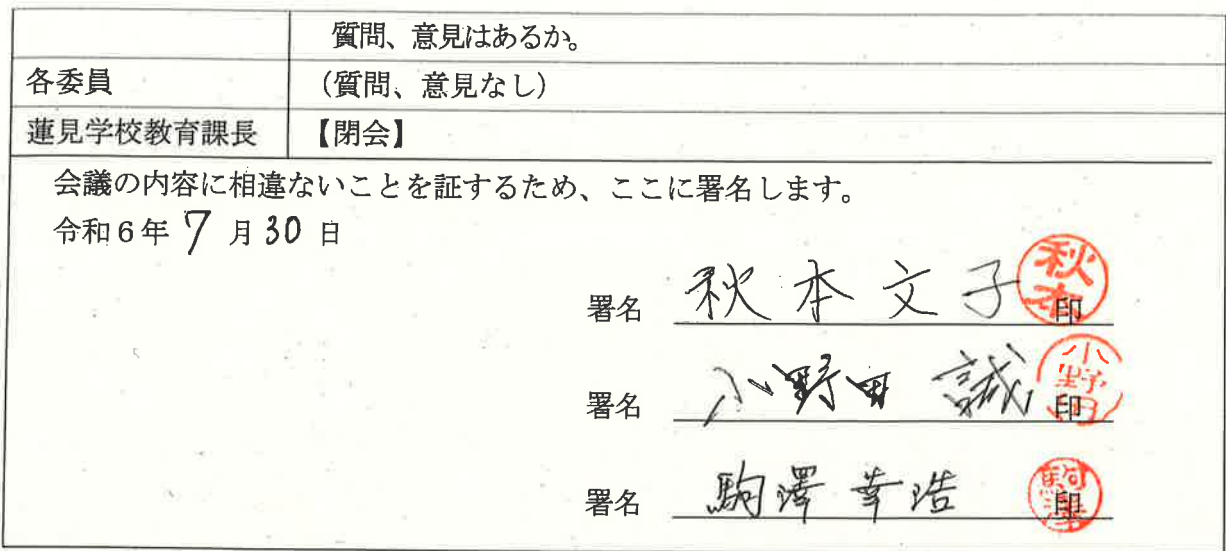 質問、意見はあるか。
各委員 （質問、意見なし）
蓮見学校教育課長 【閉会】
会議の内容に相違ないことを証するため、ここに署名します。
令和6年 7 月 30 日
署名 秋本文子 印
秋本
署名 小野田 誠 印
小野田
署名 駒澤幸浩 印
駒澤